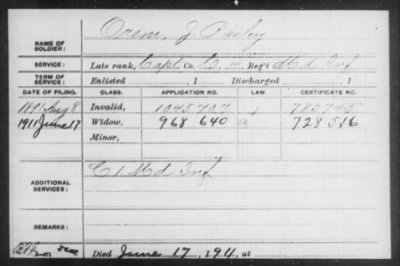 NAME OF SOLDIER: Orson J.
SERVICE: Late rank, Capt. Co. Reg't Md Inf
TERM OF SERVICE: Enlisted , 1 Discharged , 1
DATE OF FILING. CLASS. APPLICATION NO. LAW. CERTIFICATE NO.
1891 Aug 8 Invalid, 1045707 783745
1911 June 17 Widow, 968 640 a 728 516
Minor,
ADDITIONAL SERVICES: C 1 Md Inf
REMARKS:
Died June 17, 1911, at